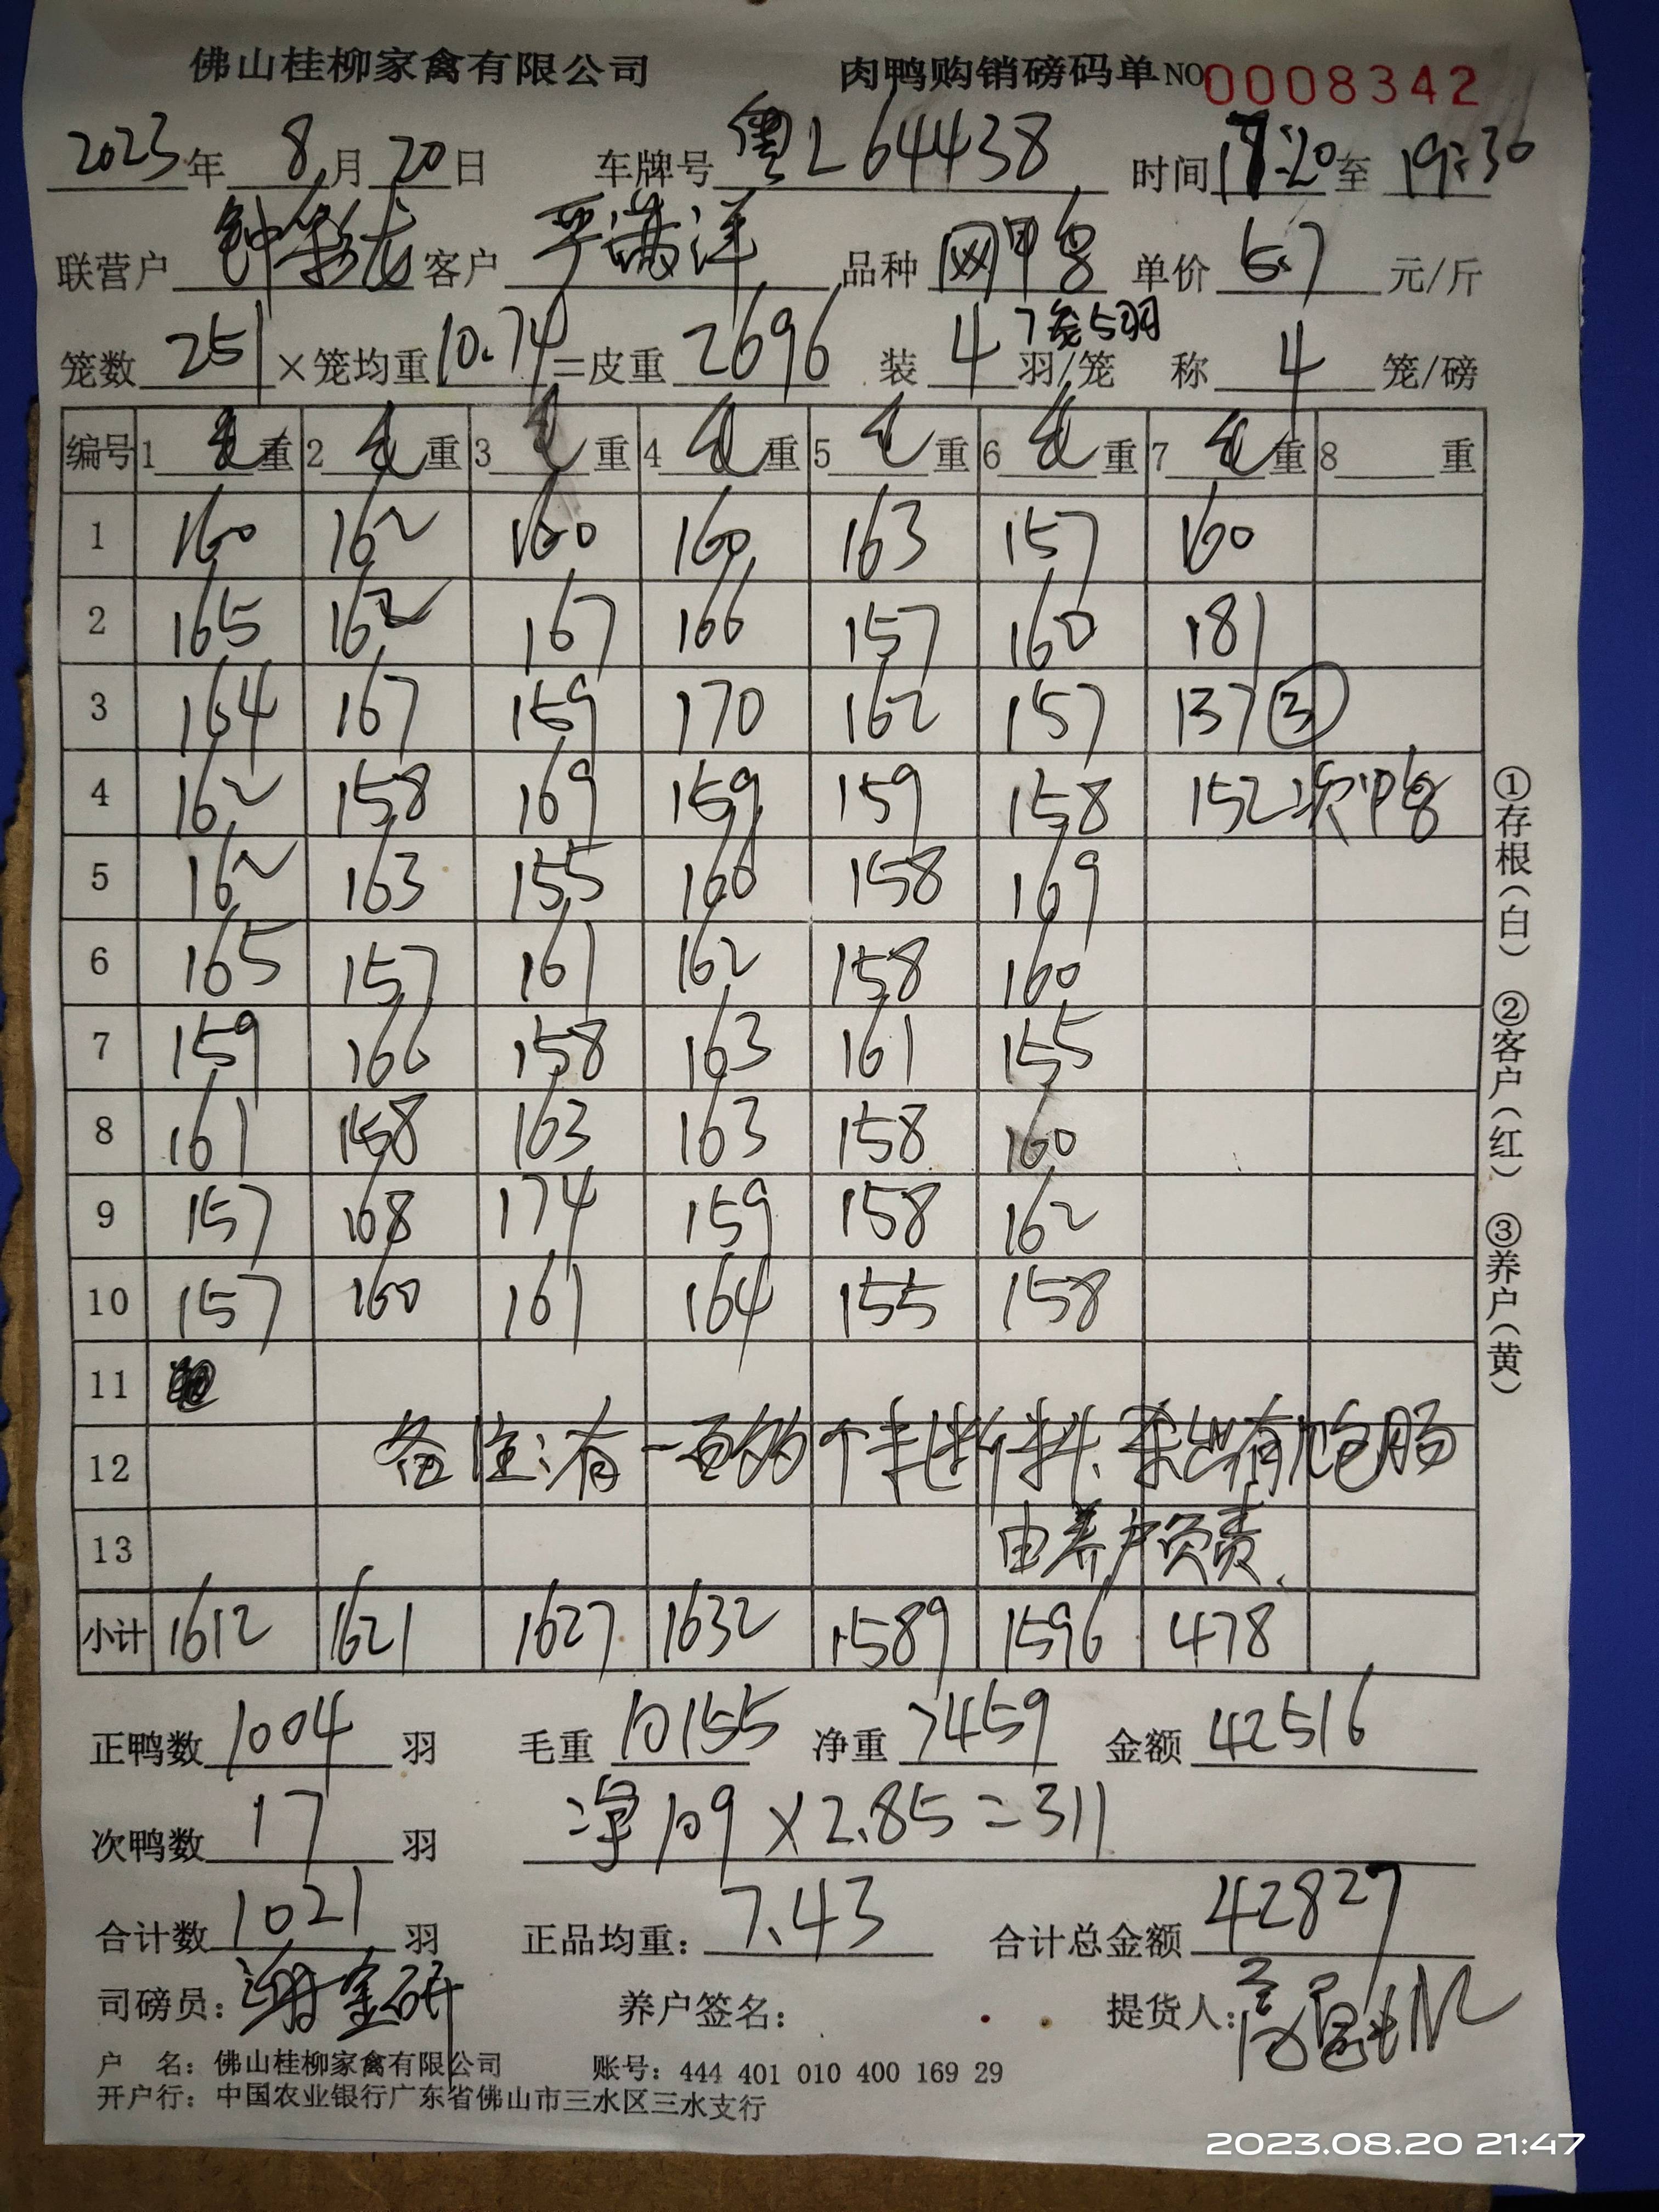 佛山桂柳家禽有限公司 肉鸭购销磅码单 NO 0008342
2023年 8月 20日 车牌号 粤L64438 时间 18:20 至 19:30
联营户 客户 严满洋 品种 网鸭 单价 5.7 元/斤
笼数 251 ×笼均重 10.74 =皮重 2696 装 4 羽/笼 7笼5羽 称 4 笼/磅
编号 1 毛 重 2 毛 重 3 毛 重 4 毛 重 5 毛 重 6 毛 重 7 毛 重 8 重
1 160 162 160 160 163 157 160
2 165 162 167 166 157 160 181
3 164 167 159 170 162 157 137 ③
4 162 158 169 159 159 158 152 次鸭
5 162 163 155 166 158 169
6 165 157 161 162 158 160
7 159 166 158 163 161 155
8 161 158 163 163 158 160
9 157 168 174 159 158 162
10 157 160 161 164 155 158
11
12 备注:有一百多个毛断料、杀出有 肠
13 由养户负责
小计 1612 1621 1627 1632 1589 1596 478
正鸭数 1004 羽 毛重 10155 净重 7459 金额 42516
次鸭数 17 羽 净109×2.85=311
合计数 1021 羽 正品均重: 7.43 合计总金额 42827
司磅员: 谢金研 养户签名: 提货人:
户 名: 佛山桂柳家禽有限公司 账号: 444 401 010 400 169 29
开户行: 中国农业银行广东省佛山市三水区三水支行
①存根(白) ②客户(红) ③养户(黄)
2023.08.20 21:47